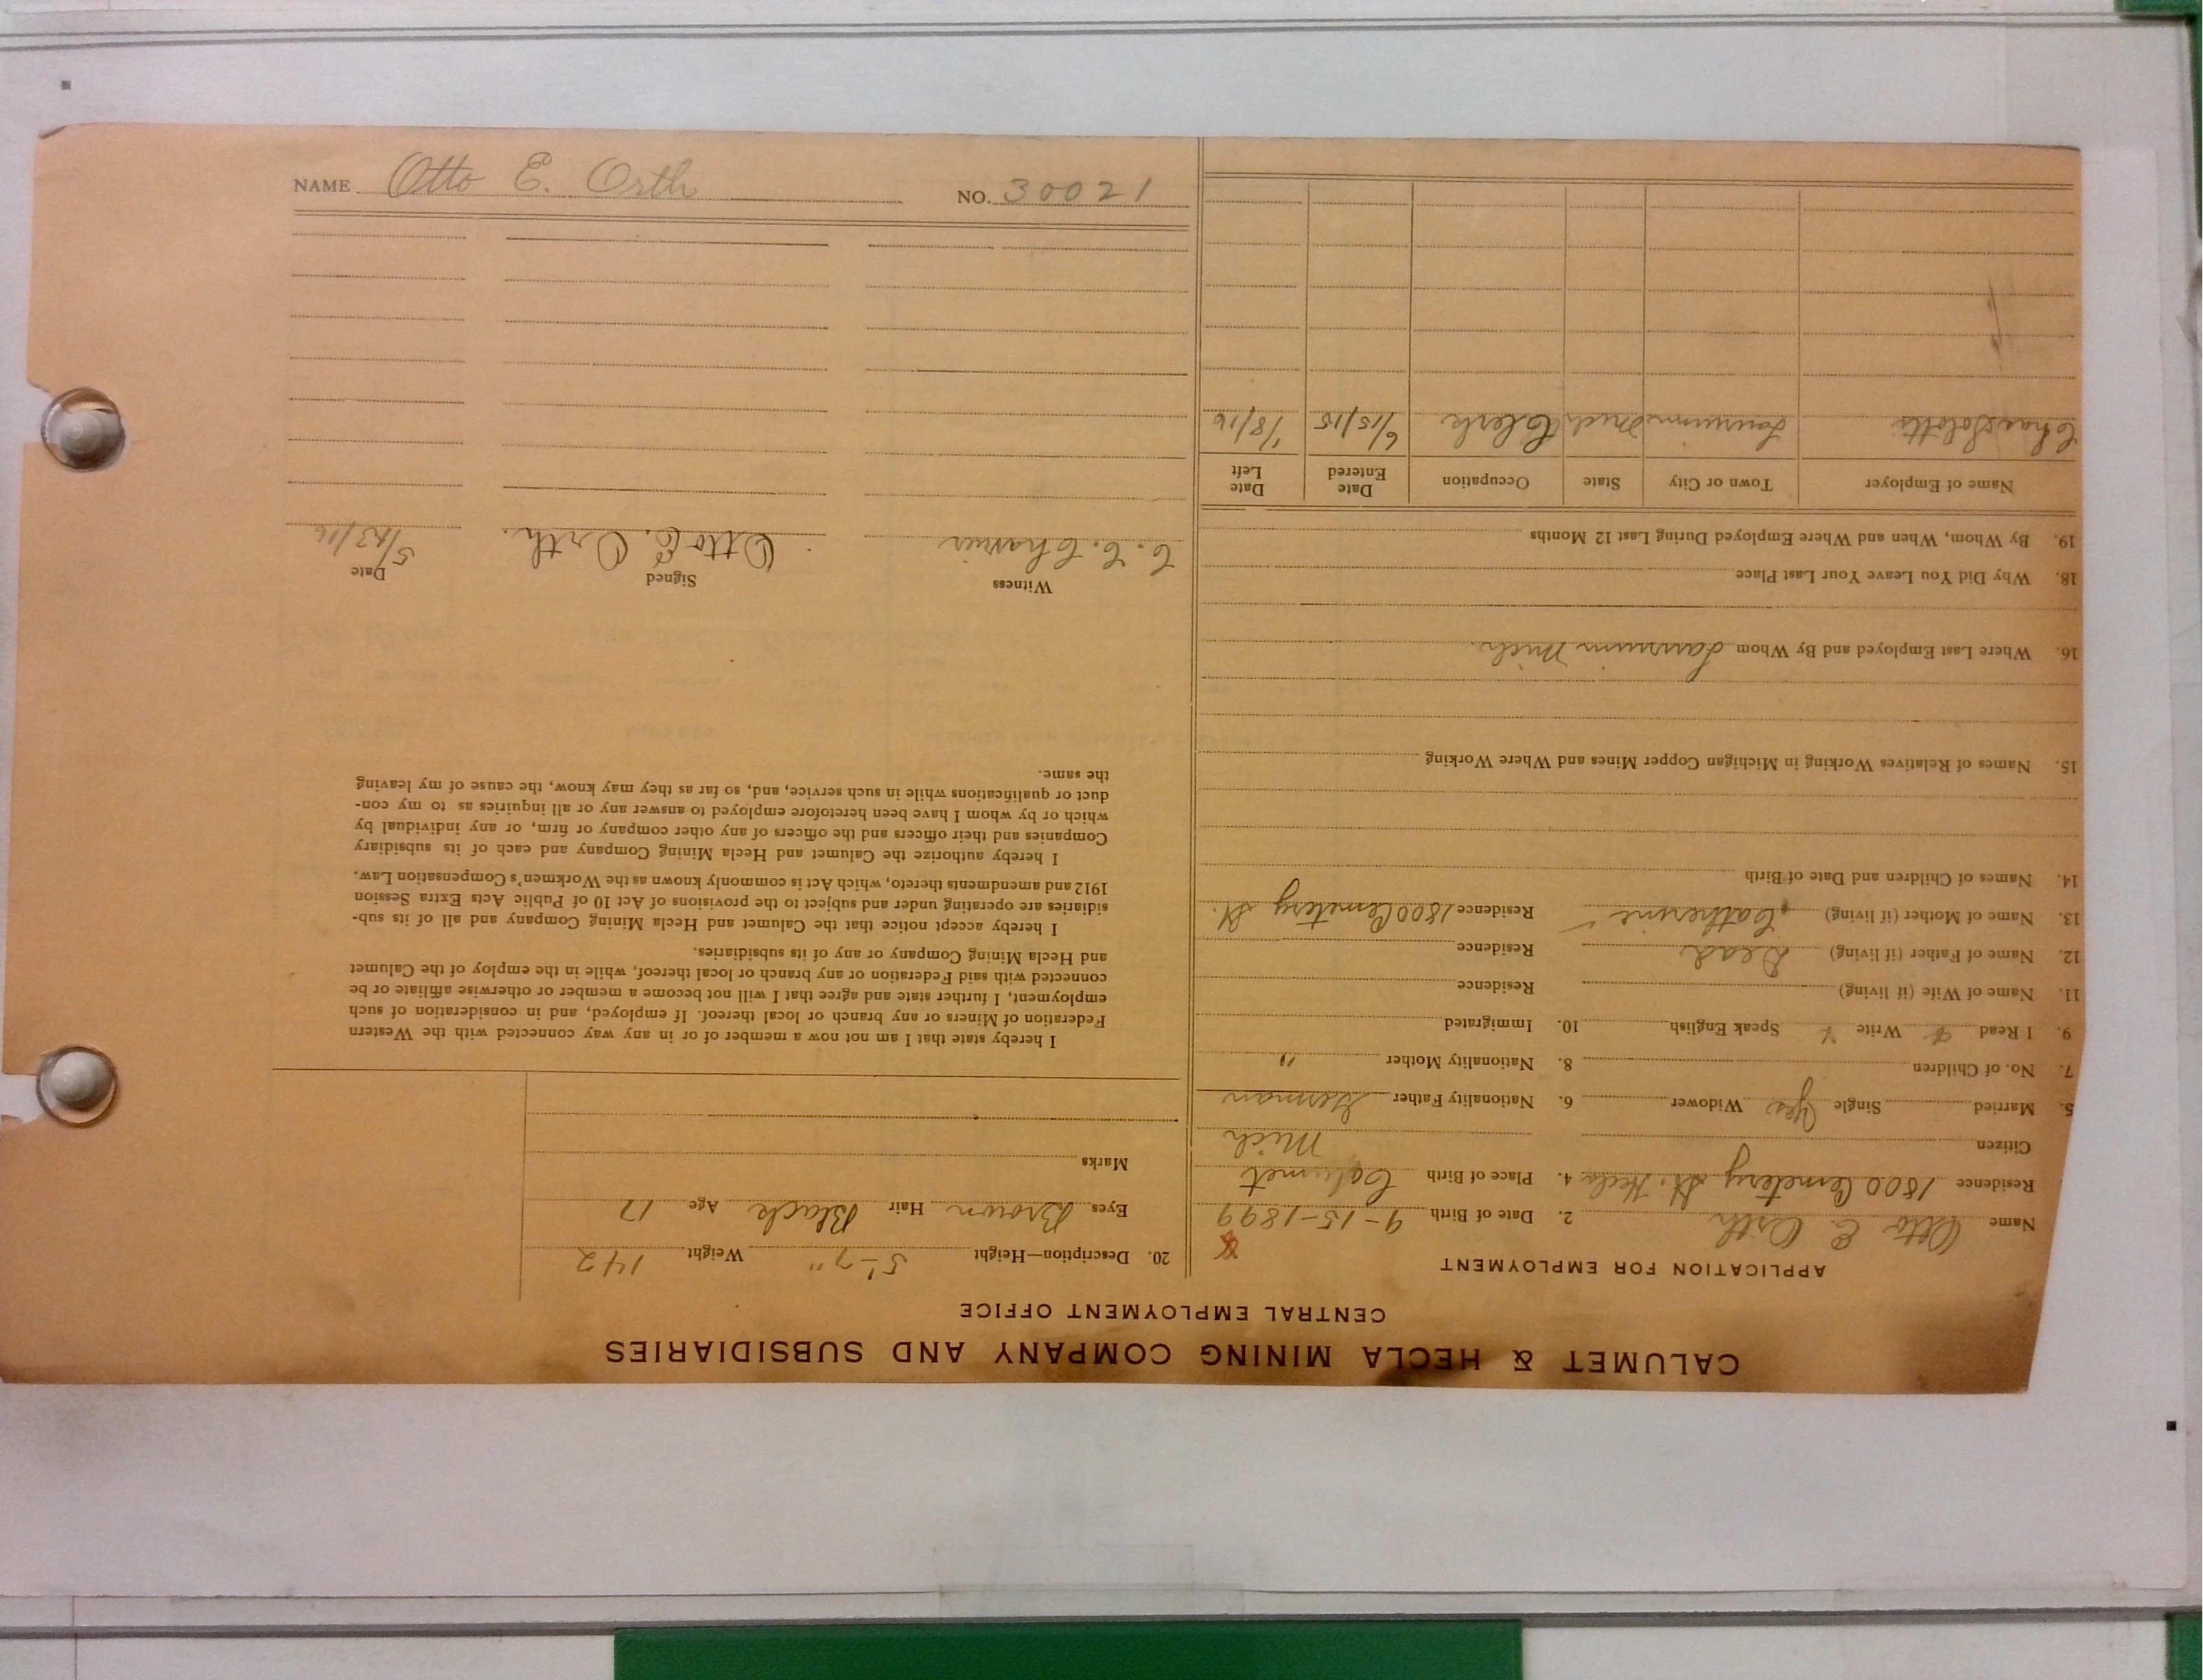 NAME Otto E. Orth NO. 30021
CALUMET & HECLA MINING COMPANY AND SUBSIDIARIES
CENTRAL EMPLOYMENT OFFICE
APPLICATION FOR EMPLOYMENT
Name Otto E. Orth 2. Date of Birth 9-15-1899
Residence 1800 Cemetery St. Hecla 4. Place of Birth Calumet
Citizen Mich
5. Married Single Yes Widower 6. Nationality Father German
7. No. of Children 8. Nationality Mother "
9. I Read Write Speak English 10. Immigrated
11. Name of Wife (if living) Residence
12. Name of Father (if living) Dead Residence
13. Name of Mother (if living) Catherine Residence 1800 Cemetery St.
14. Names of Children and Date of Birth
15. Names of Relatives Working in Michigan Copper Mines and Where Working
16. Where Last Employed and By Whom Laurium Mich.
18. Why Did You Leave Your Last Place
19. By Whom, When and Where Employed During Last 12 Months
Name of Employer Town or City State Occupation Date Entered Date Left
Chas Laurium Mich Clerk 6/15/15 1/8/16
20. Description—Height 5'-7" Weight 142
Eyes Brown Hair Black Age 17
Marks
I hereby state that I am not now a member of or in any way connected with the Western
Federation of Miners or any branch or local thereof. If employed, and in consideration of such
employment, I further state and agree that I will not become a member or otherwise affiliate or be
connected with said Federation or any branch or local thereof, while in the employ of the Calumet
and Hecla Mining Company or any of its subsidiaries.
I hereby accept notice that the Calumet and Hecla Mining Company and all of its sub-
sidiaries are operating under and subject to the provisions of Act 10 of Public Acts Extra Session
1912 and amendments thereto, which Act is commonly known as the Workmen's Compensation Law.
I hereby authorize the Calumet and Hecla Mining Company and each of its subsidiary
Companies and their officers and the officers of any other company or firm, or any individual by
which or by whom I have been heretofore employed to answer any or all inquiries as to my con-
duct or qualifications while in such service, and, so far as they may know, the cause of my leaving
the same.
Witness Signed Date
C. C. Otto E. Orth. 5/23/16